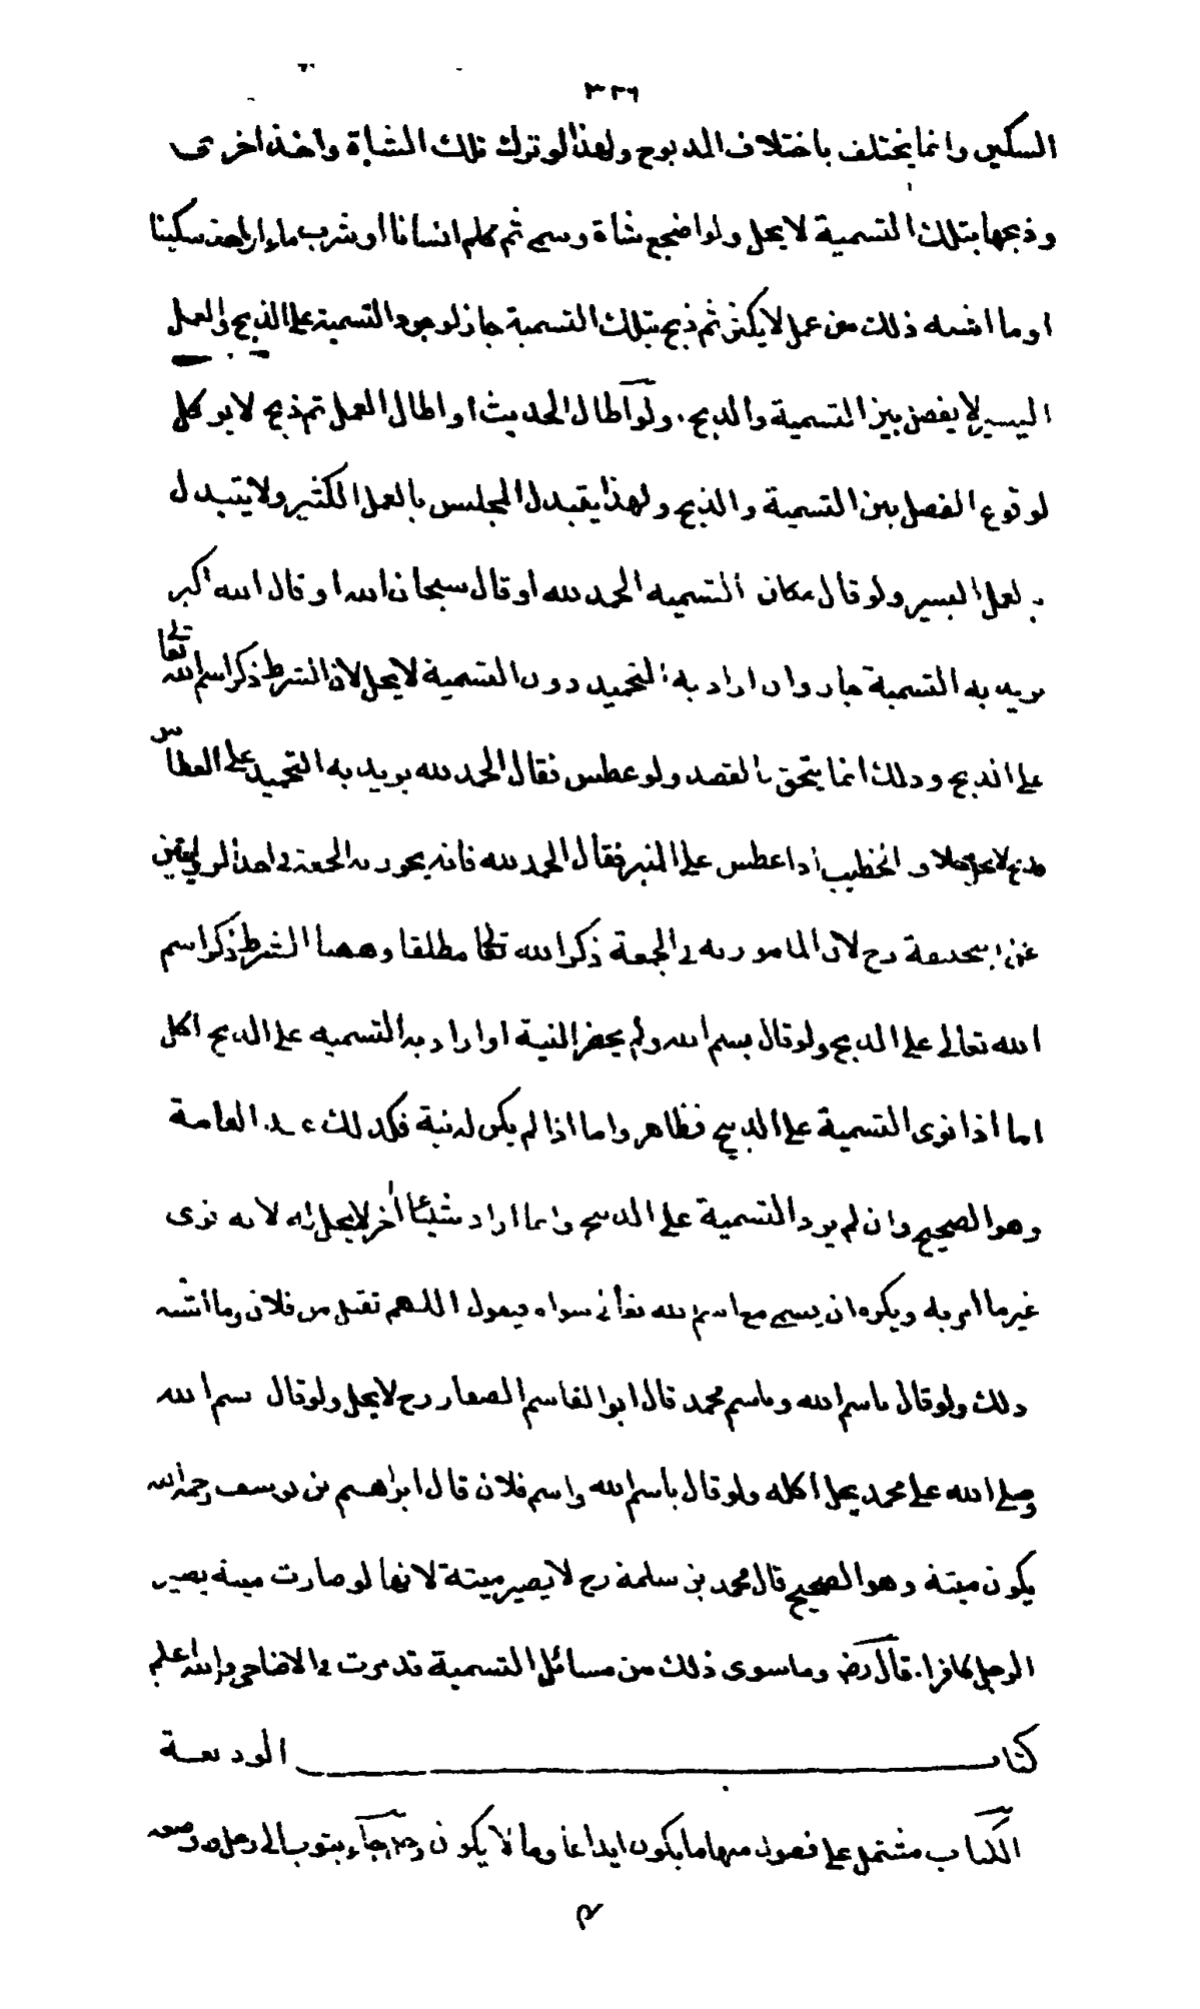 ٣٢٦
السكين وانما يختلف باختلاف المدبوح ولهذا لو ترك تلك الشاة واخذ اخرى
وذبحها بتلك التسمية لا يحل ولو اضجع شاة وسمى ثم كلم انسانا او شرب ماء او اخذ سكينا
او ما اشبه ذلك من عمل لا يكثر ثم ذبح بتلك التسمية جاز لوجود التسمية على الذبح والعمل
اليسير لا يفصل بين التسمية والذبح. ولو اطال الحديث او اطال العمل ثم ذبح لا يوكل
لوقوع الفصل بين التسمية والذبح ولهذا يتبدل المجلس بالعمل الكثير ولا يتبدل
بالعمل اليسير ولو قال مكان التسميه الحمد لله او قال سبحان الله او قال الله اكبر
يريد به التسمية جاز وان اراد به التحميد دون التسمية لا يحل لان الشرط ذكر اسم الله تعالى
على الذبح وذلك انما يتحقق بالقصد ولو عطس فقال الحمد لله يريد به التحميد على العطاس
فذبح لا يحل والخطيب اذا عطس على المنبر فقال الحمد لله فانه يجوز به الجمعة في احد
عن ابيحنيفة رح لان المامور به في الجمعة ذكر الله تعالى مطلقا وههنا الشرط ذكر اسم
الله تعالى على الذبح ولو قال بسم الله ولم يحضر النية او اراد به التسميه على الذبح اكل
اما اذا نوى التسمية على الذبح فظاهر واما اذا لم يكن له نية فكذلك عند العامة
وهو الصحيح وان لم يرد التسمية على الذبح وانما اراد شيئا اخر لا يحل لانه نوى
غير ما امر به ويكره ان يسمى مع اسم الله تعالى سواه فيقول اللهم تقبل من فلان وما اشبه
ذلك ولو قال باسم الله وباسم محمد قال ابو القاسم الصفار رح لا يحل ولو قال بسم الله
وصلى الله على محمد يحل اكله ولو قال باسم الله واسم فلان قال ابراهيم بن يوسف رحمه الله
يكون ميتة وهو الصحيح قال محمد بن سلمة رح لا يصير ميتة لانها لو صارت ميتة يصير
الرجل كافرا. قال رض وما سوى ذلك من مسائل التسمية قد مرت في الاضاحى والله اعلم
كتاب الوديعة
الكتاب مشتمل على فصول منها ما يكون ايداعا وما لا يكون رجل جاء بثوب الى رجل ووضعه